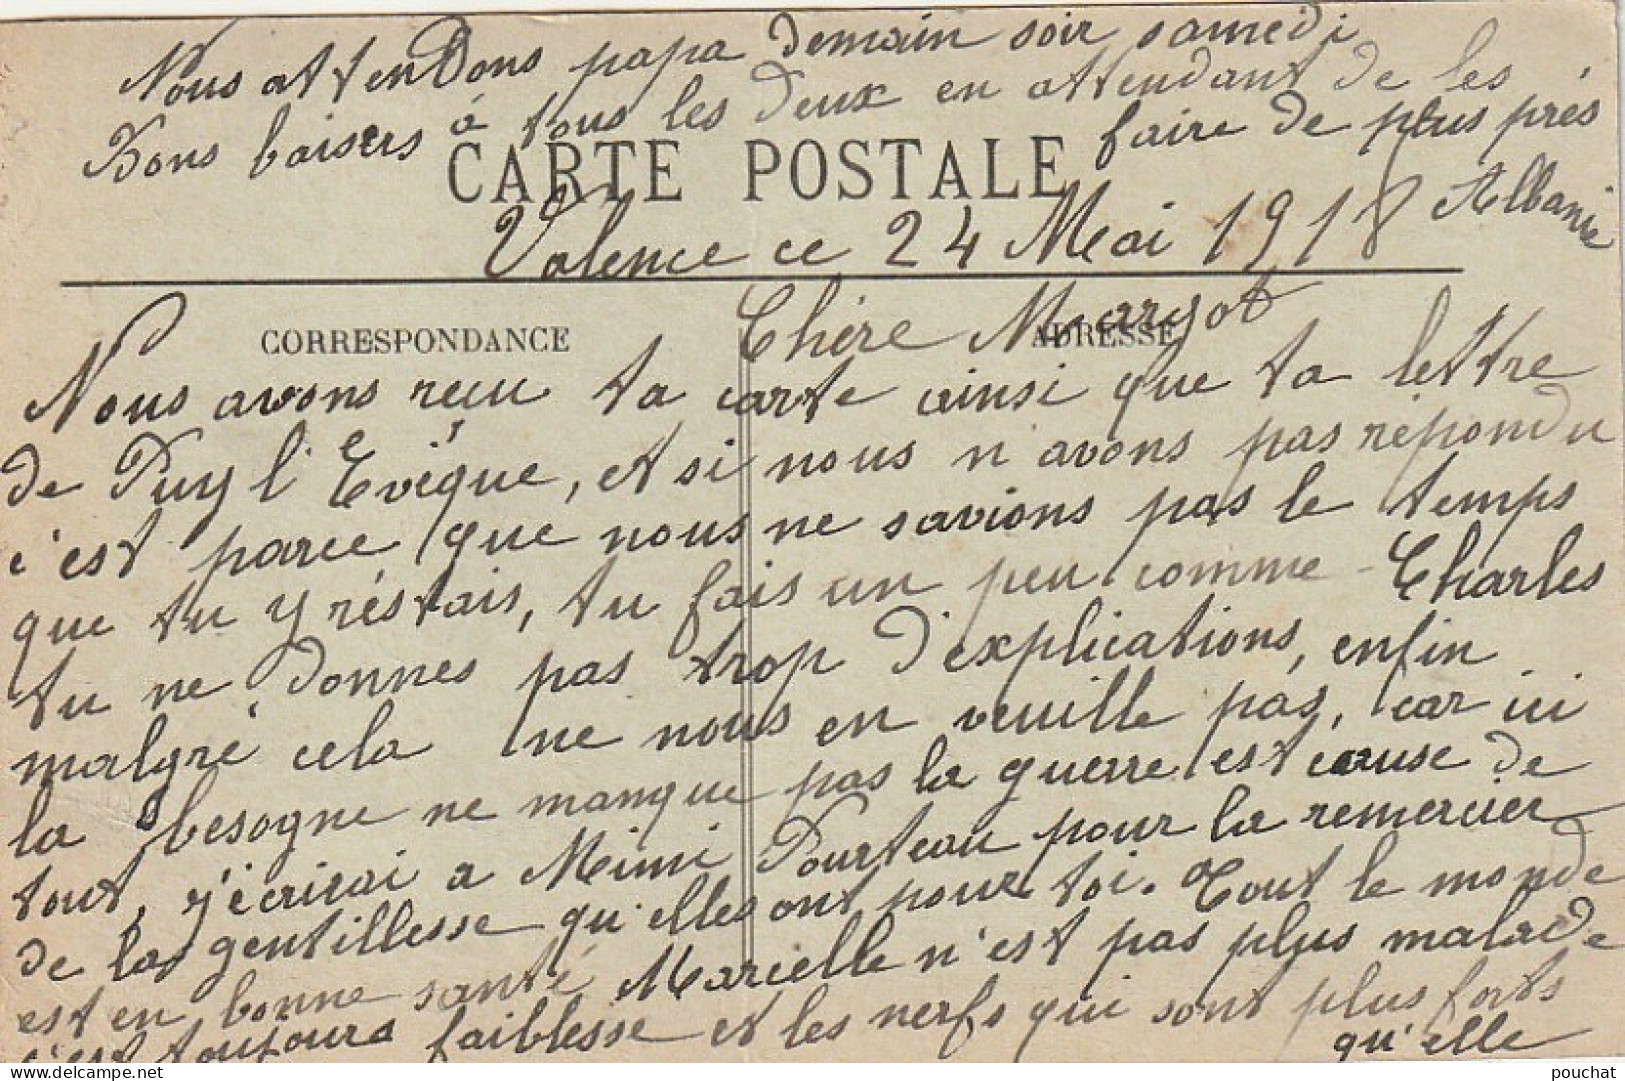 Nous attendons papa demain soir samedi
Bons baisers à tous les deux en attendant de les
faire de plus prés
Albanie
CARTE POSTALE
Valence ce 24 Mai 1918
CORRESPONDANCE
ADRESSE
Chére Margot
Nous avons reçu ta carte ainsi que ta lettre
de Puy l'Evêque, et si nous n'avons pas répondu
c'est parce que nous ne savions pas le temps
que tu y réstais, tu fais un peu comme Charles
tu ne donnes pas trop d'explications, enfin
malgré cela ne nous en veuille pas, car ici
la besogne ne manque pas la guerre est cause de
tout, j'écrirai a Mimi Pourteau pour la remercier
de la gentillesse qu'elles ont pour toi. Tout le monde
est en bonne santé Marcelle n'est pas plus malade
c'est toujours faiblesse et les nerfs qui sont plus forts
qu'elle
pouchat